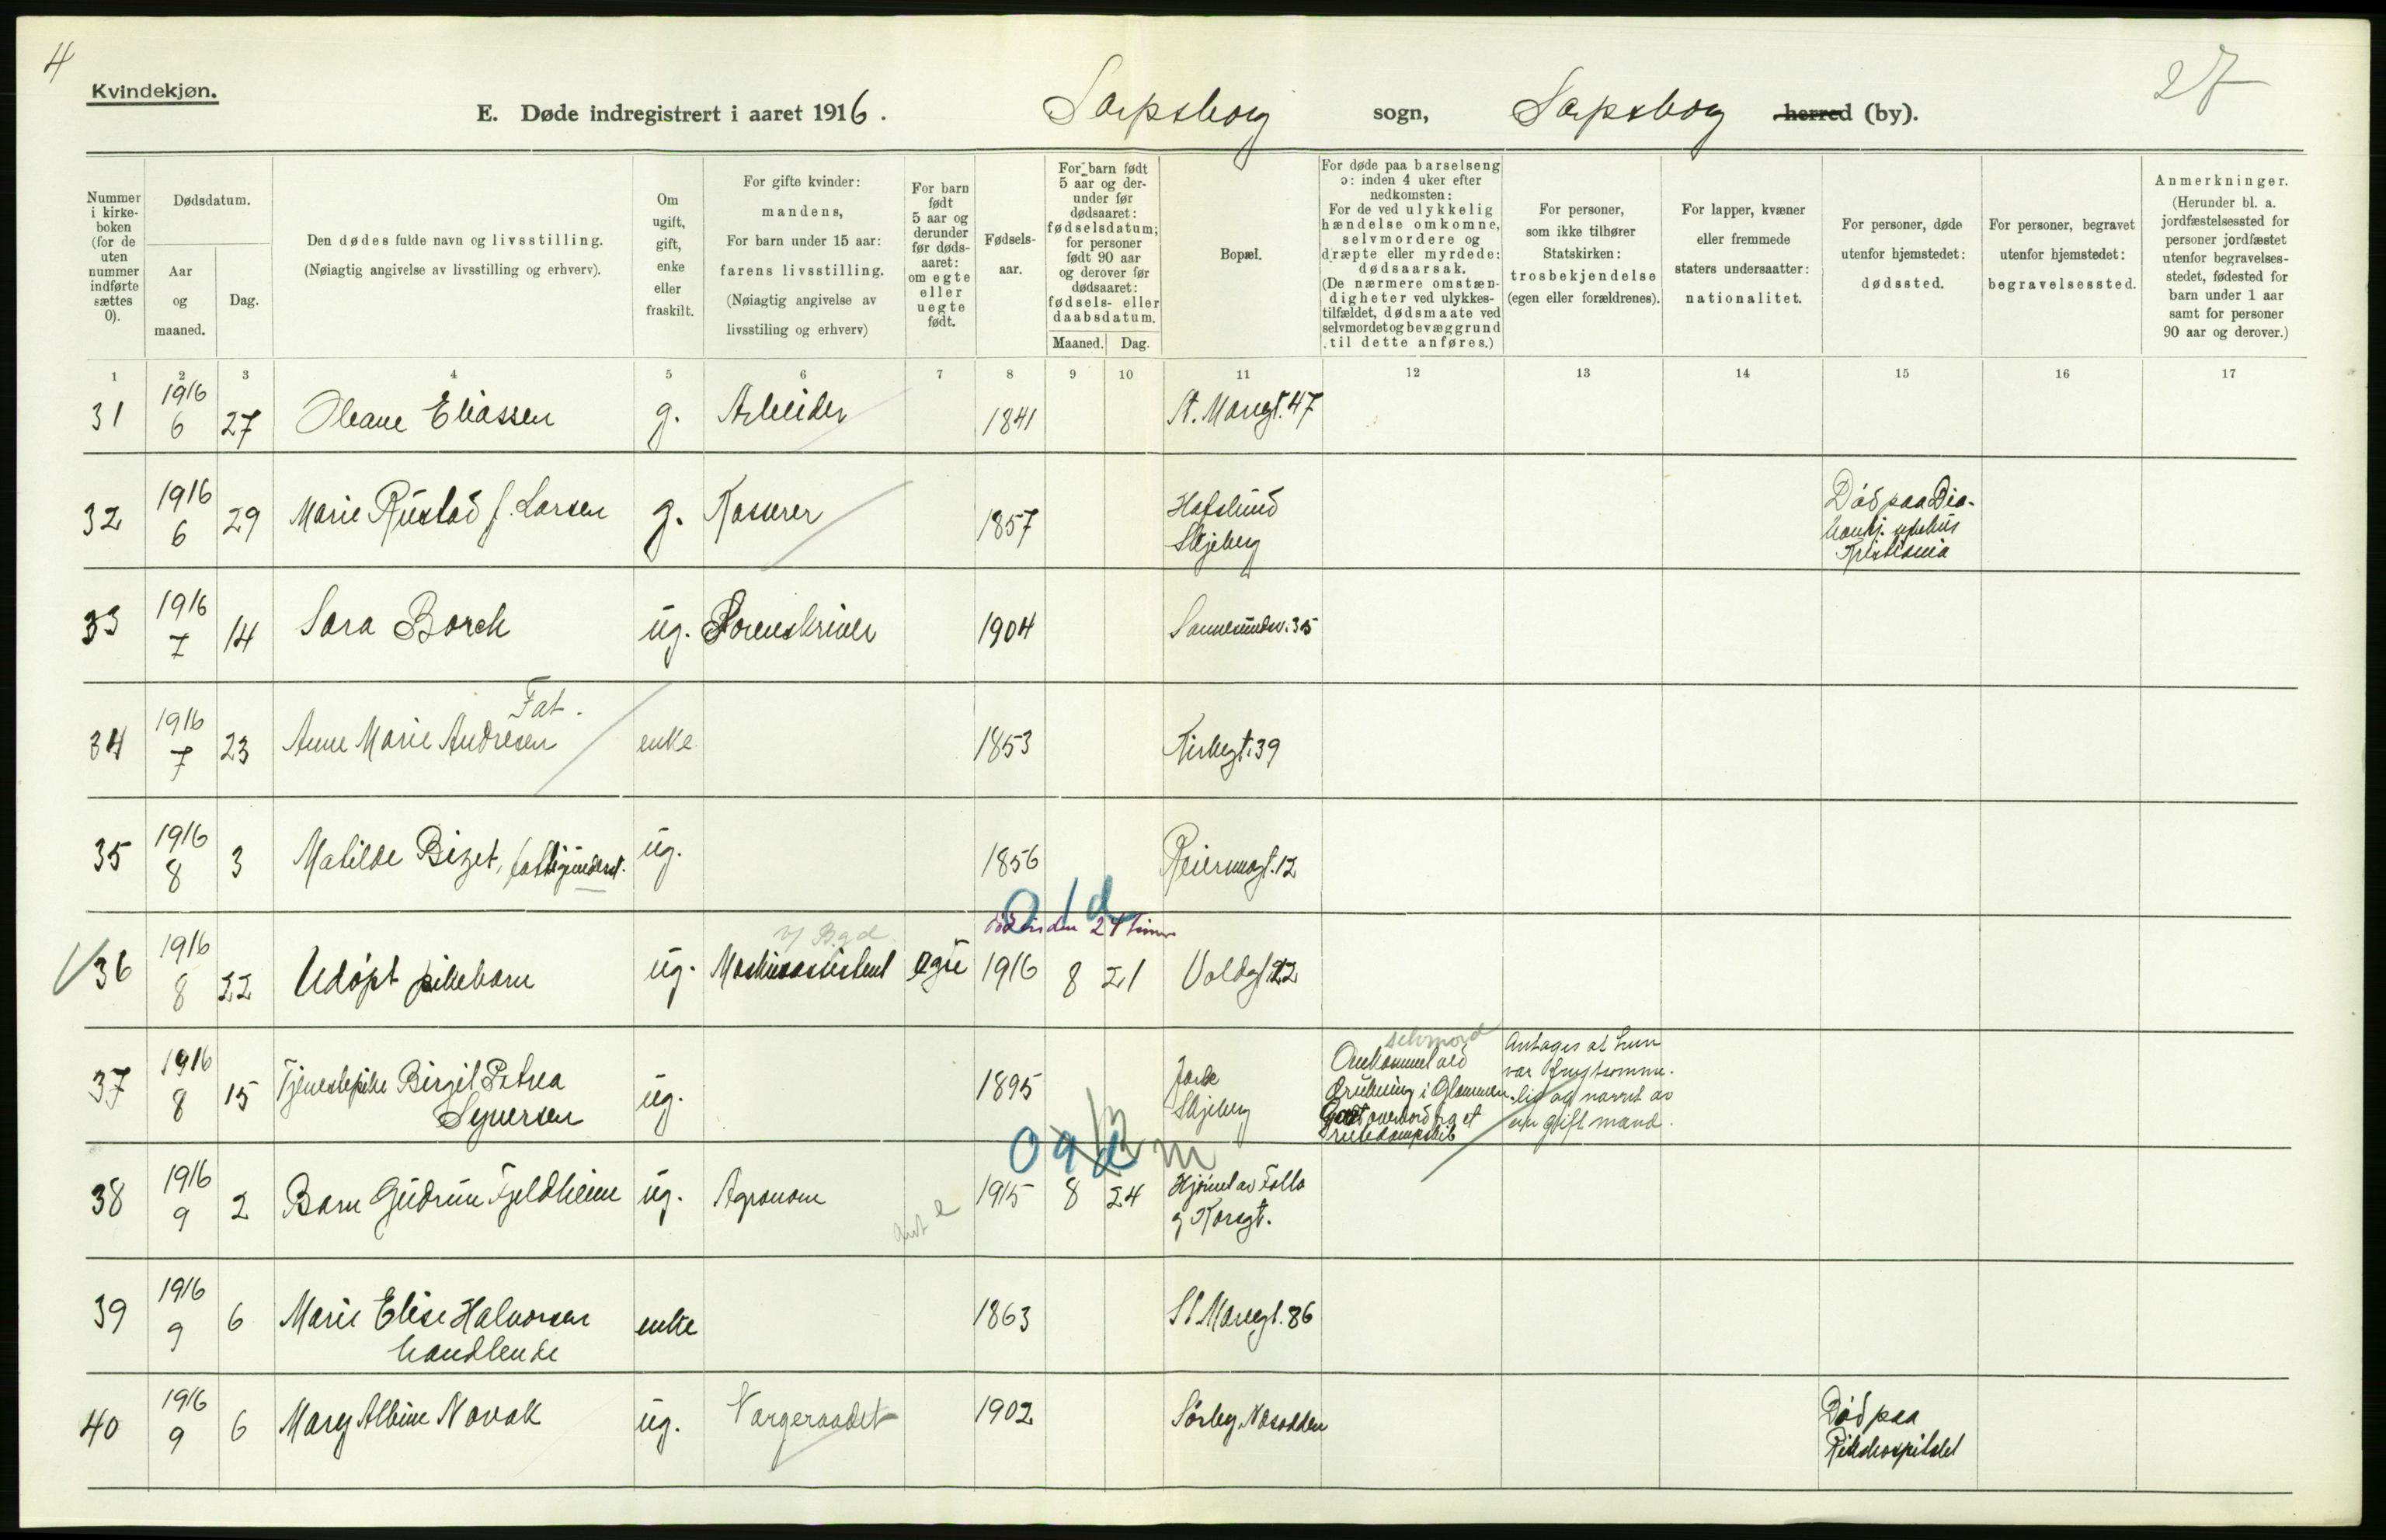 4
27
Kvindekjøn.
E. Døde indregistrert i aaret 1916. Sarpsborg sogn, Sarpsborg herred (by).
Nummer i kirke-boken (for de uten nummer indførte sættes 0).
Dødsdatum.
Aar og maaned.
Dag.
Den dødes fulde navn og livsstilling.
(Nøiagtig angivelse av livsstilling og erhverv).
Om ugift, gift, enke eller fraskilt.
For gifte kvinder: mandens,
For barn under 15 aar: farens livsstilling.
(Nøiagtig angivelse av livsstiling og erhverv)
For barn født 5 aar og derunder før døds-aaret: om egte eller uegte født.
Fødsels-aar.
For barn født 5 aar og der-under før dødsaaret: fødselsdatum; for personer født 90 aar og derover før dødsaaret: fødsels- eller daabsdatum.
Maaned. Dag.
Bopæl.
For døde paa barselseng ɔ: inden 4 uker efter nedkomsten:
For de ved ulykkelig hændelse omkomne, selvmordere og dræpte eller myrdede: dødsaarsak.
(De nærmere omstæn-digheter ved ulykkes-tilfældet, dødsmaate ved selvmordet og bevæggrund til dette anføres.)
For personer, som ikke tilhører Statskirken: trosbekjendelse (egen eller forældrenes).
For lapper, kvæner eller fremmede staters undersaatter: nationalitet.
For personer, døde utenfor hjemstedet: dødssted.
For personer, begravet utenfor hjemstedet: begravelsessted.
Anmerkninger.
(Herunder bl. a. jordfæstelsessted for personer jordfæstet utenfor begravelses-stedet, fødested for barn under 1 aar samt for personer 90 aar og derover.)
1 2 3 4 5 6 7 8 9 10 11 12 13 14 15 16 17
31 1916 6 27 Oleane Eliassen g. Arbeider 1841 St. Mariegt. 47
32 1916 6 29 Marie Rustad f. Larsen g. Kasserer 1857 Hafslund Skjeberg Død paa Dia- Kristiania
33 1916 7 14 Sara Borch ug. Sorenskriver 1904 Sannesundsv. 35
34 1916 7 23 Anne Marie Andresen Fat. enke 1853 Kirkegt. 39
35 1916 8 3 Matilde Bizet, fattigunderst. ug. 1856 12
0 1 d
død inden 24 timer
v/ B.g.d.
36 1916 8 22 Udøpt pikebarn ug. Maskinassistent egte 1916 8 21 Voldgt. 22
37 1916 8 15 Tjenestepike Birgit Petrea Syversen ug. 1895 Skjeberg
selvmord
Omkommet ved drukning i Glommen. Godt overbord fra et rutedampskib
Antages at hun var frugtsomme-lig og narret av en gift mand.
0 9 d
12 m
38 1916 9 2 Barn Gudrun Fjeldheim ug. Agronom ant e 1915 8 24 Hjørnet av Folla og Korsgt.
39 1916 9 6 Marie Elise Halvorsen handlende enke 1863 St Mariegt. 86
40 1916 9 6 Mary Albine Novak ug. Vergeraadet 1902 Sørby, Nesodden Død paa Rikshospitalet